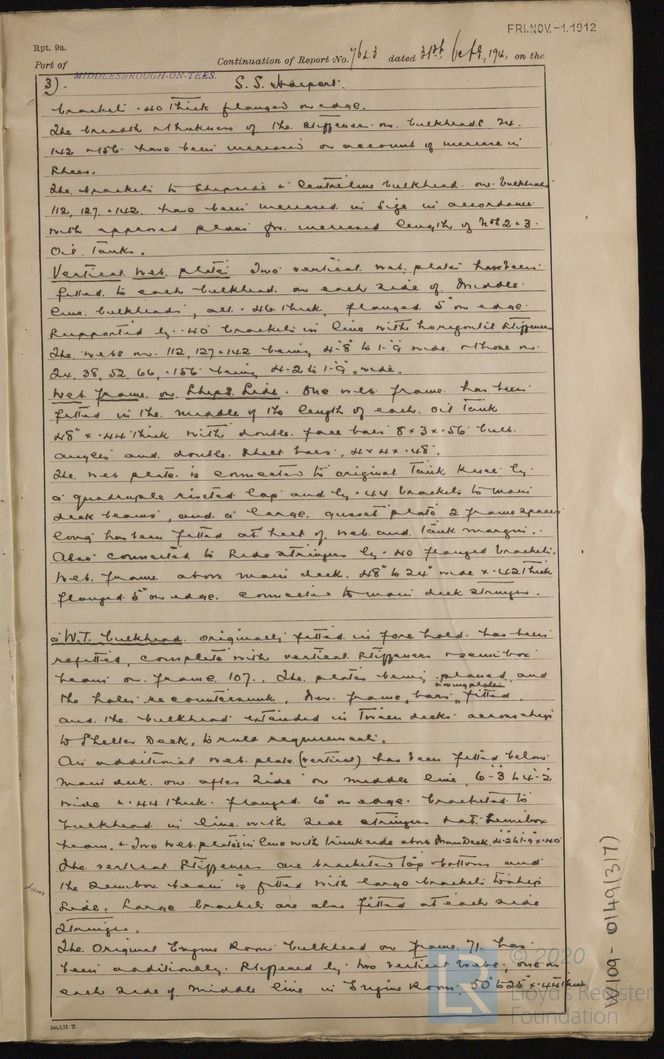 FRI.NOV.-1.1912
Rpt. 9a.
Port of Continuation of Report No. 7623 dated 31st Octr, 191, on the
MIDDLESBROUGH-ON-TEES.
3). S.S. Harport.
bracket .40 thick flanged on edge.
The breadth & thickness of the stiffeners on bulkheads 24.
142 & 156 have been increased on account of increase in
The brackets to shipside & centreline bulkhead on bulkheads
112, 127 & 142 have been increased in size in accordance
with approved plans for increased length of Nos 2 & 3
Oil Tanks.
Vertical web plates Two vertical web plates have been
fitted to each bulkhead on each side of middle
line bulkheads, all .46 thick, flanged 5" on edge
supported by .40 brackets in line with horizontal stiffeners
The webs on 112, 127 & 142 being 4-8 to 1-9 wide & those on
24, 38, 52, 66, & 156 being 4-2 to 1-9 wide.
Web frame on Ships Side. One web frame has been
fitted in the middle of the length of each oil tank
48" x .44 thick with double face bars 8 x 3 x .56 bulb
angles and double shell bars, 4 x 4 x .48.
The web plate is connected to original tank knee by
a quadruple riveted lap and by .44 brackets to main
deck beams, and a large gusset plate 2 frame spaces
long has been fitted at heel of web and tank margin.
Also connected to side stringers by .40 flanged brackets.
Web frame above main deck 48" to 24" wide x .42 thick
flanged 5" on edge connected to main deck stringer.
a W.T. bulkhead originally fitted in fore hold has been
refitted, complete with vertical stiffeners & semi box
beam on frame 107. The plates being planed and
the holes recountersunk, new frame bars fitted
and the bulkhead extended in tween decks
to Shelter Deck, to rule requirements.
An additional web plate (vertical) has been fitted below
main deck on after side on middle line, 6-3 to 4-2
wide & .44 thick flanged 6" on edge bracketed to
bulkhead in line with side stringers & at semibox
beam, & two web plates in line with trunk sides above Main Deck 4-2 to 1-9 x .40
The vertical stiffeners are bracketed top & bottom and
the semibox beam is fitted with large brackets to ship
side. Large brackets are also fitted at each side
stringer.
The Original Engine Room bulkhead on frame 71 has
been additionally stiffened by two vertical webs, one on
each side of middle line in Engine Room, 50" to 25" x .44 thick
W109-0149(3/7)
© 2020
LR
Lloyd's Register
Foundation